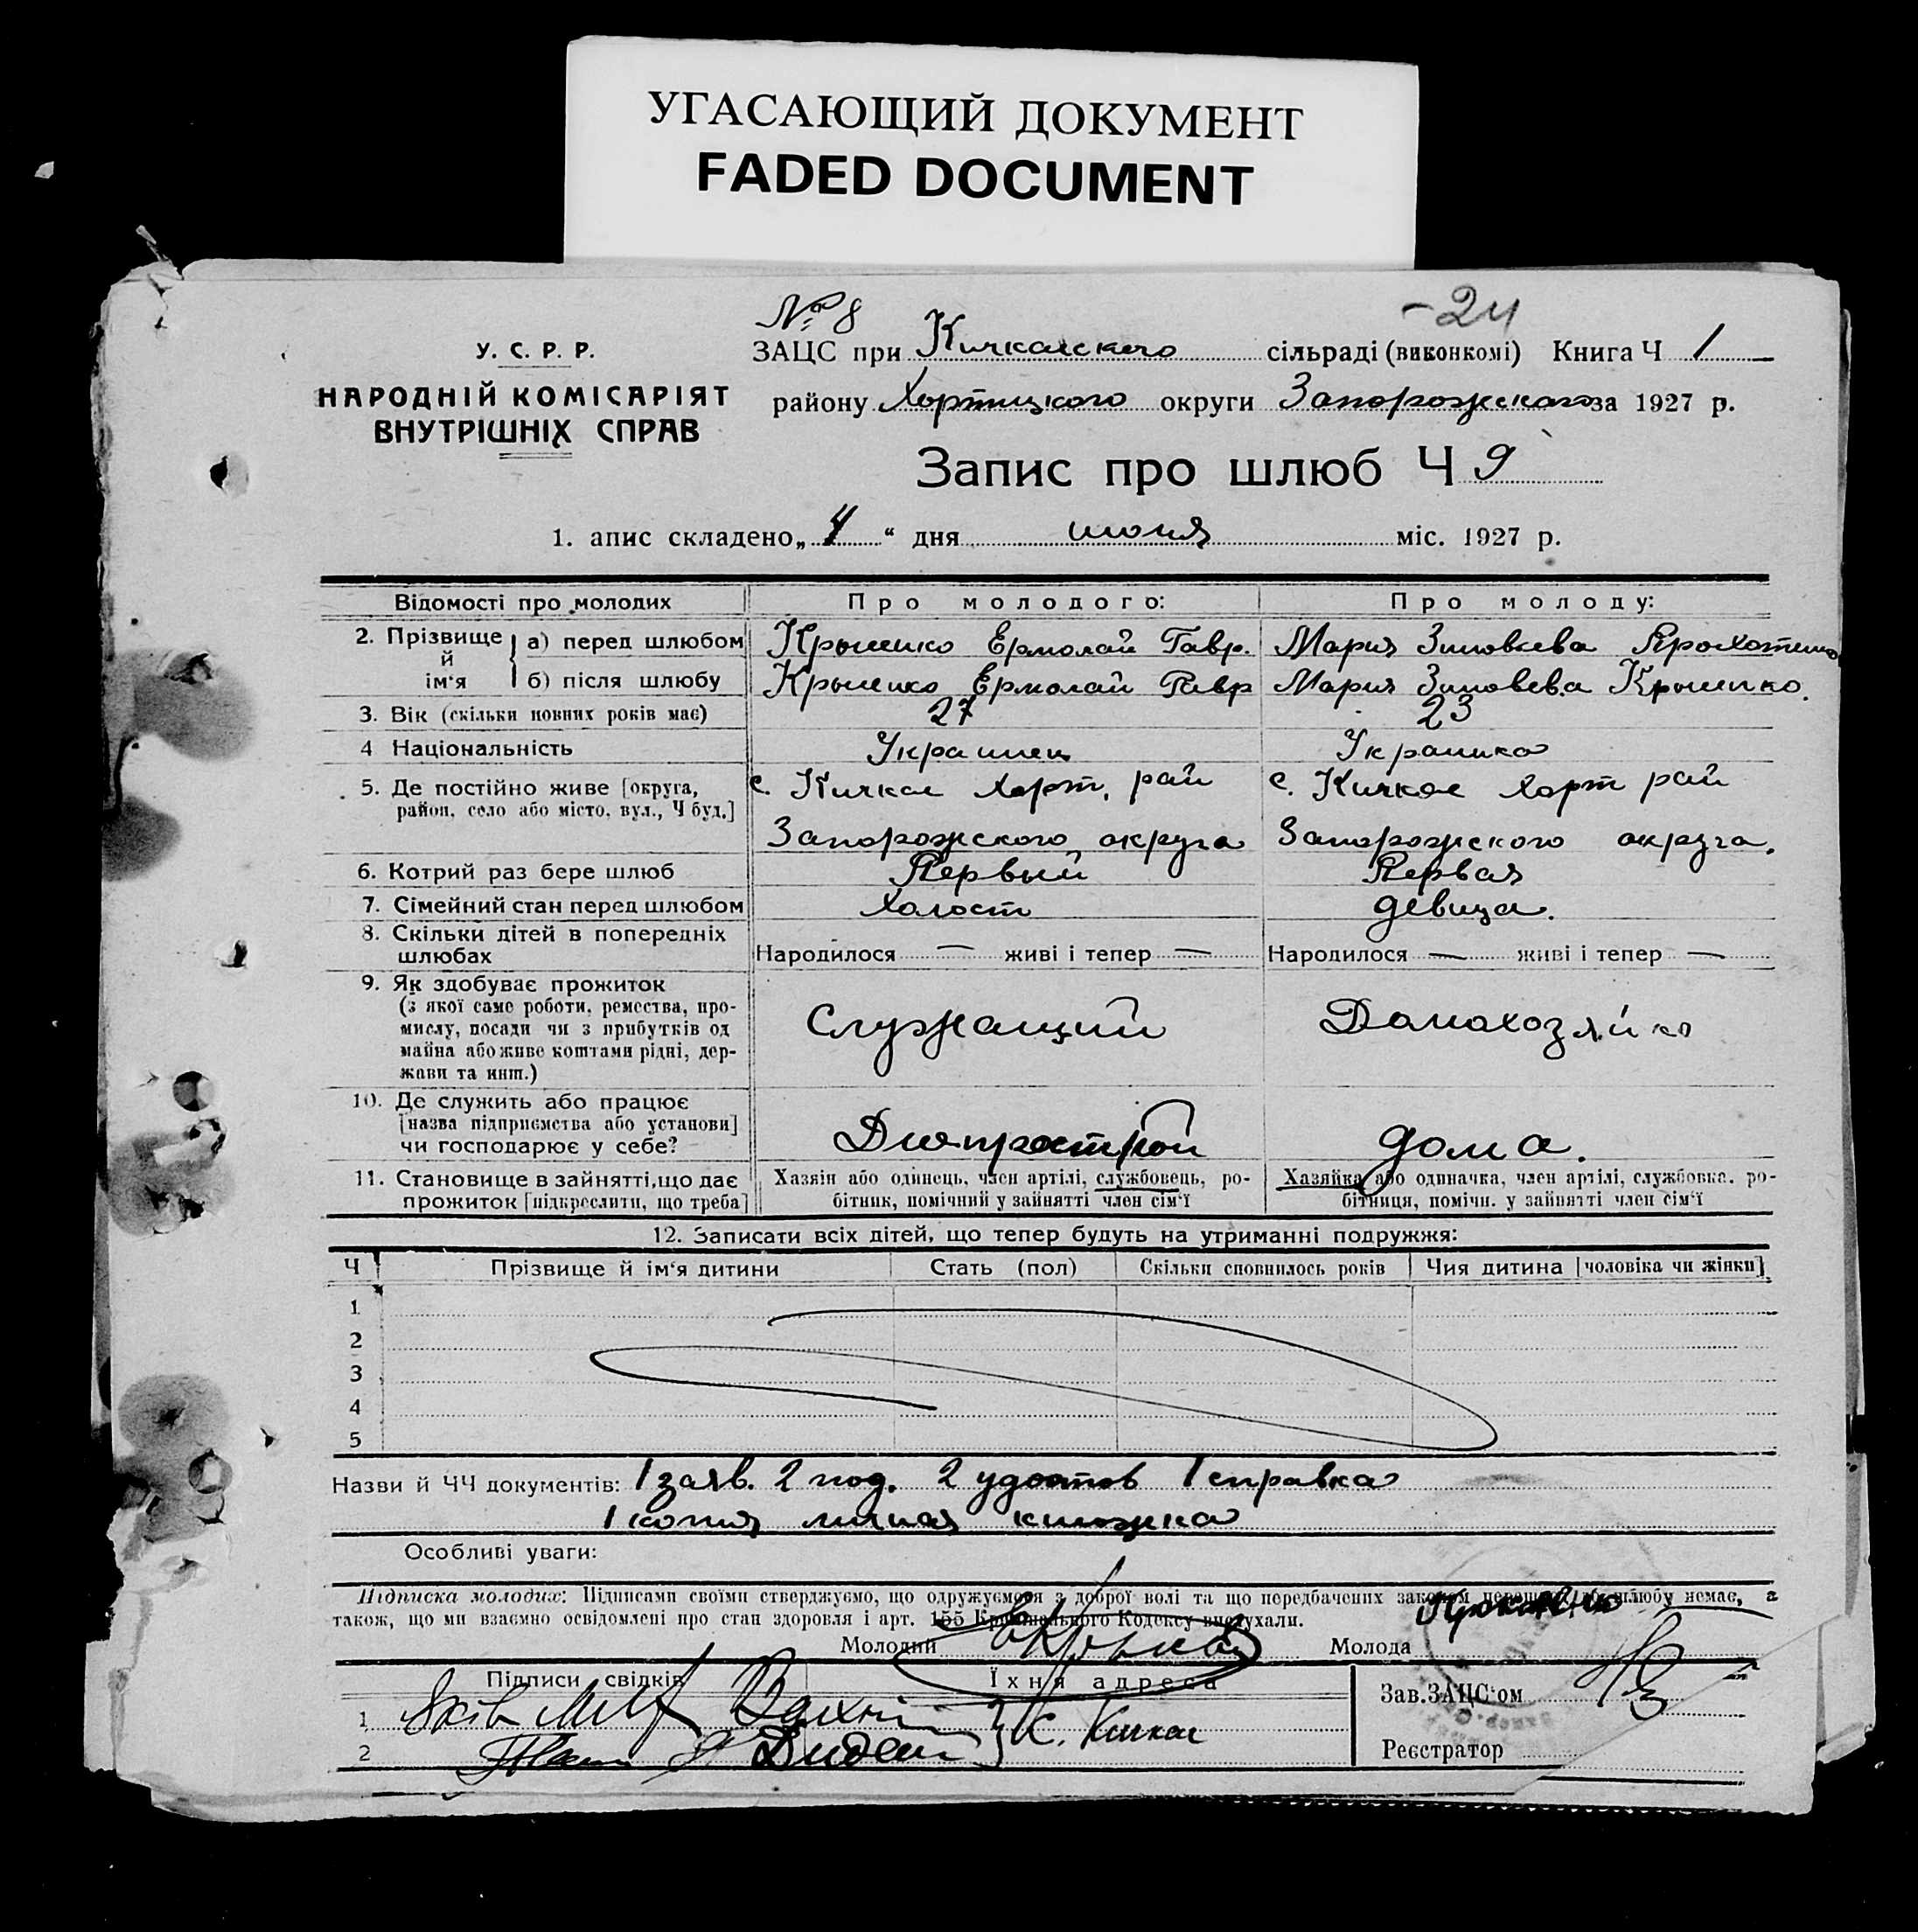 УГАСАЮЩИЙ ДОКУМЕНТ
FADED DOCUMENT
№ 8
-24
У. С. Р. Р.
НАРОДНІЙ КОМІСАРІЯТ
ВНУТРІШНІХ СПРАВ
ЗАЦС при Кичкасского сільраді (виконкомі) Книга Ч 1
району Хортицкого округи Запорожского за 1927 р.
Запис про шлюб Ч 9
1. апис складено „4“ дня июня міс. 1927 р.
Відомості про молодих Про молодого: Про молоду:
2. Прізвище й ім‘я а) перед шлюбом Ермолай Гавр. Мария Зиновьева
б) після шлюбу Ермолай Гавр Мария Зиновьева
3. Вік (скільки повних років має) 27 23
4 Національність Украинец Украинка
5. Де постійно живе [округа, район, село або місто, вул., Ч буд.] с. Кичкас Хорт. рай с. Кичкас Хорт рай
Запорожского округа Запорожского округа.
6. Котрий раз бере шлюб Первый Первая
7. Сімейний стан перед шлюбом Холост девица.
8. Скільки дітей в попередніх шлюбах Народилося — живі і тепер — Народилося — живі і тепер —
9. Як здобуває прожиток
(з якої саме роботи, ремества, про-
мислу, посади чи з прибутків од
майна або живе коштами рідні, дер-
жави та инш.) Служащий Домохозяйка
10. Де служить або працює
[назва підприємства або установи]
чи господарює у себе? Днепрострой дома.
11. Становище в зайнятті, що дає
прожиток [підкреслити, що треба]
Хазяїн або одинець, член артілі, службовець, ро-
бітник, помічний у зайнятті член сім‘ї
Хазяйка або одиначка, член артілі, службовка. ро-
бітниця, помічн. у зайнятті член сім‘ї
12. Записати всіх дітей, що тепер будуть на утриманні подружжя:
Ч Прізвище й ім‘я дитини Стать (пол) Скільки сповнилось років Чия дитина [чоловіка чи жінки]
1
2
3
4
5
Назви й ЧЧ документів: 1 заяв. 2 под. 2 удостов 1 справка
1 копия личная книжка
Особливі уваги:
Підписка молодих: Підписами своїми стверджуємо, що одружуємося з доброї волі та що передбачених законом перешкод до шлюбу немає, а
також, що ми взаємно освідомлені про стан здоровля і арт. 155 Кримінального Кодексу вислухали.
Молодий Молода
Підписи свідків Їхня адреса Зав. ЗАЦС‘ом
1 с. Кичкас
2 Реєстратор